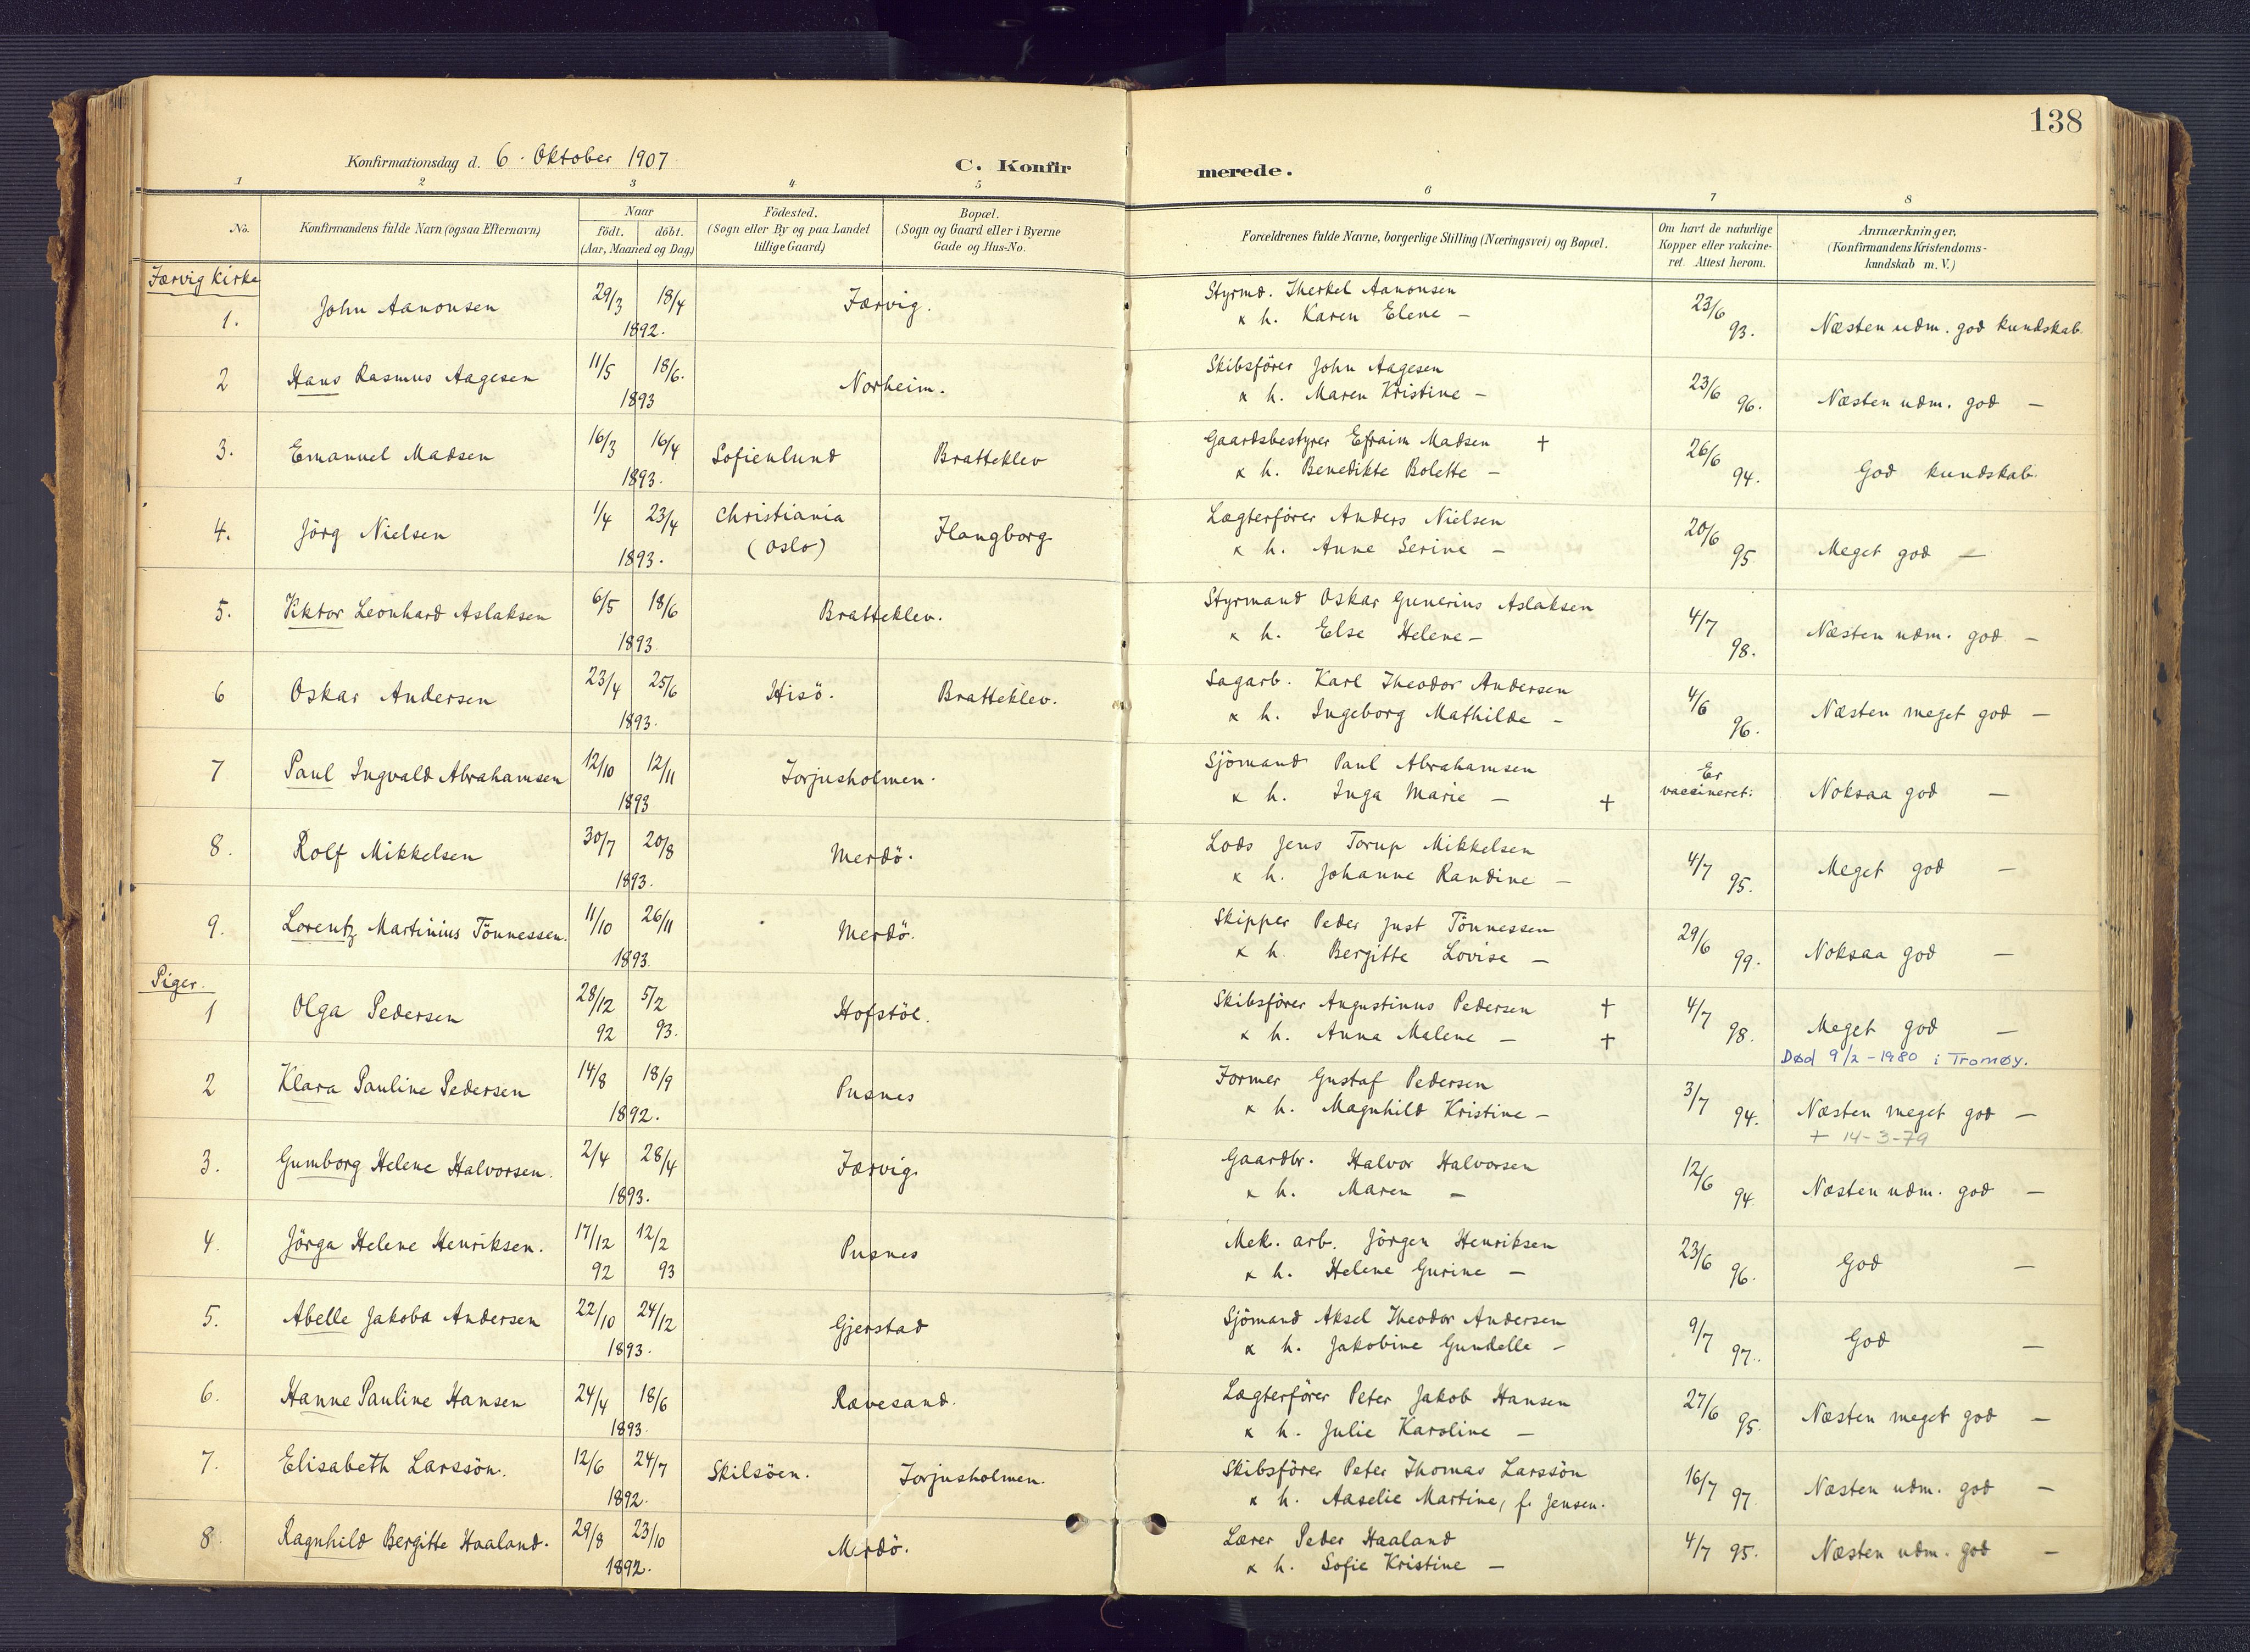 138
Konfirmationsdag d. 6. Oktober 1907
C. Konfirmerede.
1 2 3 4 5 6 7 8
No. | Konfirmandens fulde Navn (ogsaa Efternavn) | Naar födt. döbt. (Aar, Maaned og Dag) | Födested. (Sogn eller By og paa Landet tillige Gaard) | Bopæl. (Sogn og Gaard eller i Byerne Gade og Hus-No. | Forældrenes fulde Navne, borgerlige Stilling (Næringsvei) og Bopæl. | Om havt de naturlige Kopper eller vakcineret. Attest herom. | Anmærkninger, (Konfirmandens Kristendomskundskab m. V.)
Færvig Kirke
1. John Aanonsen 29/3 18/4 1892. Færvig. Styrmd. Therkel Aanonsen & h. Karen Elene — 23/6 93. Næsten udm. god kundskab.
2 Hans Rasmus Aagesen 11/5 18/6. 1893 Norheim. Skibsförer John Aagesen & h. Maren Kristine — 23/6 96. Næsten udm. god —
3. Emanuel Madsen 16/3 16/4 1893. Sofienlund Bratteklev Gaardsbestyrer Efraim Madsen † & h. Benedikte Bolette — 26/6 94. God kundskab.
4. Jörg Nielsen 1/4 23/4 1893. Christiania (Oslo) Flangborg Lægterförer Anders Nielsen & h. Anne Serine — 20/6 95 Meget god —
5. Viktor Leonhard Aslaksen 6/5 18/6 1893. Bratteklev. Styrmand Oskar Gunerius Aslaksen & h. Else Helene — 4/7 98. Næsten udm. god —
6 Oskar Andersen 23/4 25/6 1893. Hisö. Bratteklev. Sagarb. Karl Theodor Andersen & h. Ingeborg Mathilde — 4/6 96. Næsten meget god —
7 Paul Ingvald Abrahamsen 12/10 12/11 1893 Torjusholmen. Sjömand Paul Abrahamsen & h. Inga Marie — † Er vaccineret. Noksaa god —
8. Rolf Mikkelsen 30/7 20/8 1893. Merdö. Lods Jens Torup Mikkelsen & h. Johanne Randine — 4/7 95. Meget god —
9. Lorentz Martinius Tönnessen. 11/10 26/11 1893. Merdö. Skipper Peder Just Tönnessen & h. Bergitte Lovise — 29/6 99. Noksaa god —
Piger.
1 Olga Pedersen 28/12 92 5/2 93. Hofstöl. Skibsförer Augustinus Pedersen † & h. Anna Malene — † 4/7 98. Meget god —
Død 9/2-1980 i Tromøy.
2 Klara Pauline Pedersen 14/8 18/9 1892. Pusnes Former Gustaf Pedersen & h. Magnhild Kristine — 3/7 94. Næsten meget god —
+ 14-3-79
3. Gumborg Helene Halvorsen. 2/4 28/4 1893. Færvig. Gaardbr. Halvor Halvorsen & h. Maren — 12/6 94 Næsten udm. god —
4. Jörga Helene Henriksen. 17/12 92 12/2 93 Pusnes Mek. arb. Jörgen Henriksen & h. Helene Gurine — 23/6 96. God —
5. Abelle Jakoba Andersen 22/10 24/12 1893. Gjerstad Sjömand Aksel Theodor Andersen & h. Jakobine Gundelle — 9/7 97. God —
6. Hanne Pauline Hansen 24/4 18/6 1893. Rævesand. Lægterförer Peter Jakob Hansen & h. Julie Karoline — 27/6 95. Næsten meget god —
7. Elisabeth Larssön. 12/6 24/7 1892. Skilsöen. Torjusholmen. Skibsförer Peter Thomas Larssön & h. Aaselie Martine, f. Jensen. 16/7 97 Næsten udm. god —
8. Ragnhild Bergitte Haaland. 29/8 23/10 1892. Merdö. Lærer Peder Haaland & h. Sofie Kristine — 4/7 95. Næsten udm. god —